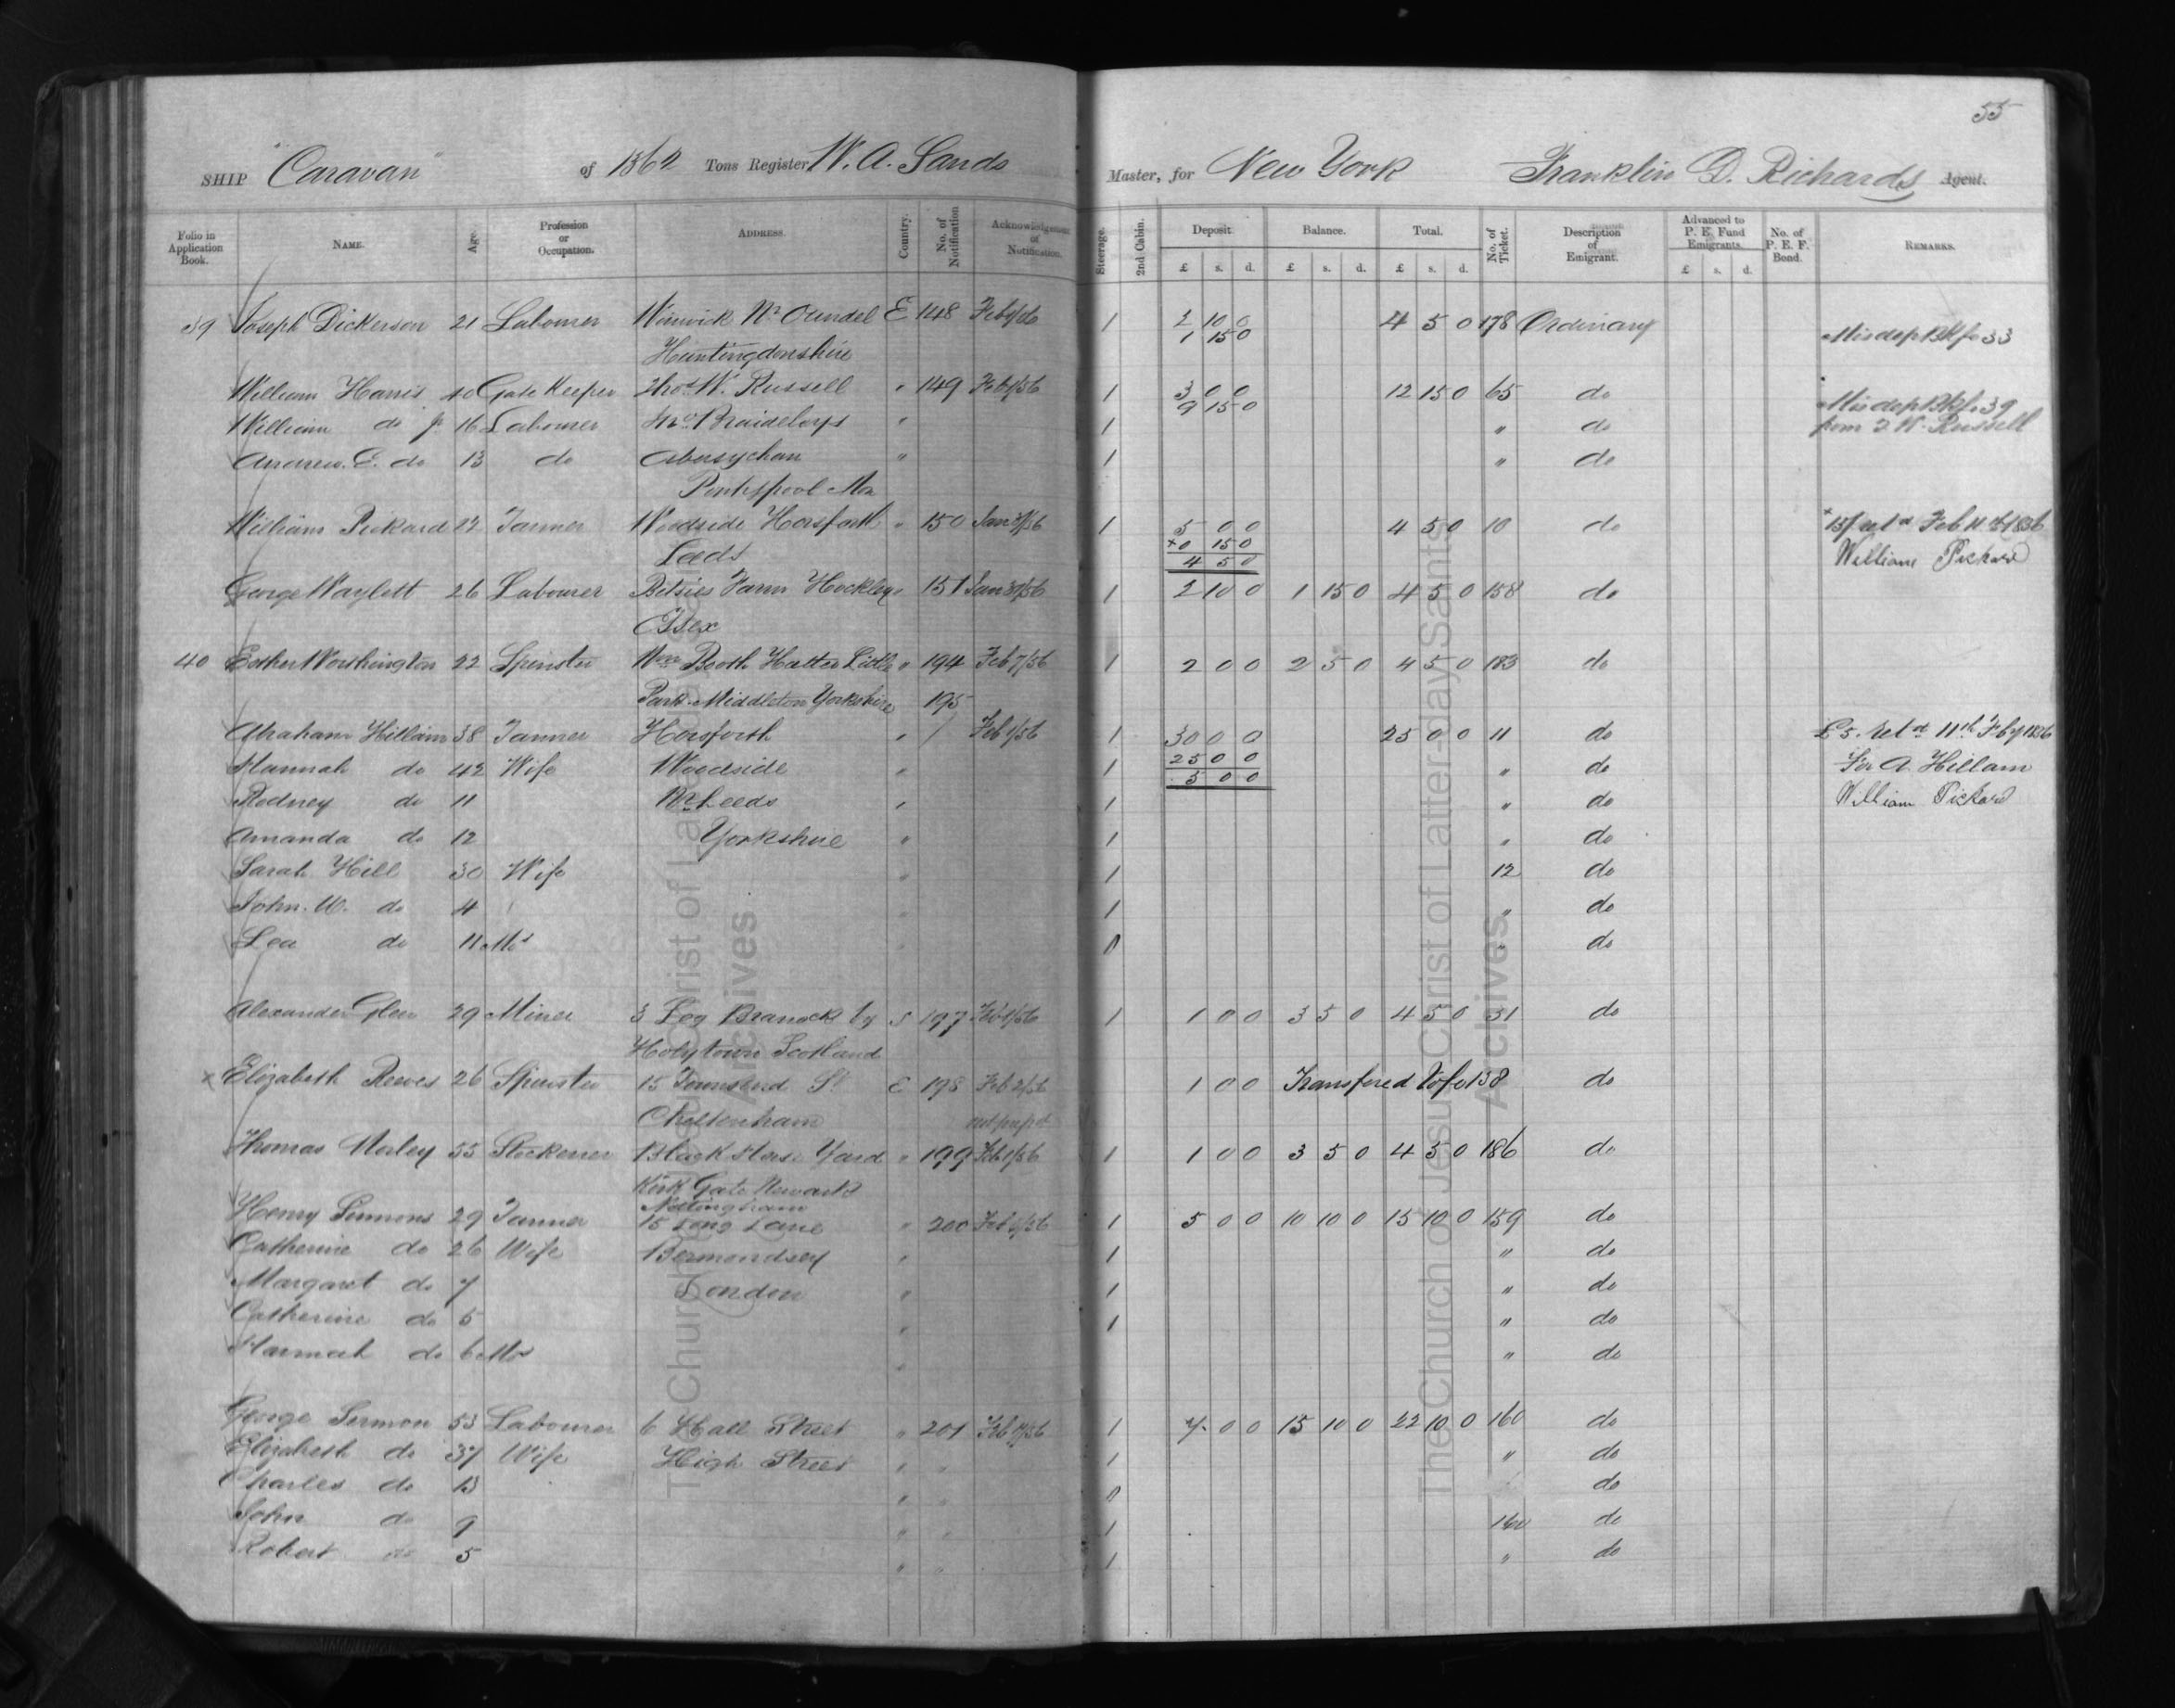 55
SHIP "Caravan" of 1362 Tons Register W. A. Sands Master, for New York Franklin D. Richards Agent.
Folio in Application Book. NAME. Age. Profession or Occupation. ADDRESS. Country. No. of Notification Acknowledgement of Notification. Steerage. 2nd Cabin. Deposit £ s. d. Balance. £ s. d. Total. £ s. d. No. of Ticket. Description of Emigrant. Advanced to P. E. Fund Emigrants. £ s. d. No. of P. E. F. Bond. REMARKS.
39 Joseph Dickerson 21 Labourer Winwick Nr Oundel E 148 Feb 1/56 1 2 10 0 4 5 0 178 Ordinary
1 15 0 Mis dep Bk fo 33
Huntingdonshire
William Harris 40 Gate Keeper Thos W. Russell " 149 Feb 1/56 1 3 0 0 12 15 0 65 do
9 15 0 Mis dep Bk fo 39
William do jr 16 Labourer " 1 " do from T. W. Russell
Andrew. E. do 13 do Abersychan " 1 " do
Pontypool Mon
William Pickard 22 Tanner Woodside Horsforth " 150 Jan 31/56 1 5 0 0 4 5 0 10 do x 15/ retd Feb 11th 1856
Leeds x0 15 0 William Pickard
4 5 0
George Waylett 26 Labourer Betsies Farm Hockley " 151 Jan 31/56 1 2 10 0 1 15 0 4 5 0 158 do
Essex
40 Esther Worthington 22 Spinster Wm Booth Hatter Little " 194 Feb 7/56 1 2 0 0 2 5 0 4 5 0 183 do
Park Middleton Yorkshire 195
Abraham Hillam 38 Tanner Horsforth " / Feb 1/56 1 30 0 0 25 0 0 11 do £5. retd 11th Feby 1856
Hannah do 42 Wife Woodside " 1 25 0 0 " do For A. Hillam
5 0 0
Rodney do 11 Nr Leeds " 1 " do William Pickard
Amanda do 12 Yorkshire " 1 " do
Sarah Hill 30 Wife " 1 12 do
John. W. do 4 1 " do
Lea do 11 Mos 0 " do
Alexander Glen 29 Miner 3 Leg Branock by S 197 Feb 1/56 1 1 0 0 3 5 0 4 5 0 31 do
Holytown Scotland
x Elizabeth Reeves 26 Spinster 15 Townsend St E 198 Feb 2/56 1 0 0 Transfered to fo 138 do
Cheltenham
Thomas Morley 55 Stockener Black Horse Yard " 199 Feb 1/56 1 1 0 0 3 5 0 4 5 0 186 do
Kirk Gate Newark
Nottingham
Henry Sermons 29 Tanner 15 Long Lane " 200 Feb 6/56 1 5 0 0 10 10 0 15 10 0 159 do
Catherine do 26 Wife Bermondsey " 1 " do
Margaret do 7 London " 1 " do
Catherine do 5 " 1 " do
Hannah do 6 Mos " " do
George Sermon 53 Labourer 6 Hall Street " 201 Feb 7/56 1 7 0 0 15 10 0 22 10 0 160 do
Elizabeth do 37 Wife High Street " " 1 " do
Charles do 13 " " 0 do
John do 9 " " 1 160 do
Robert do 5 " " 1 " do
The Church of Jesus Christ of Latter-day Saints
Archives
The Church of Jesus Christ of Latter-day Saints
Archives